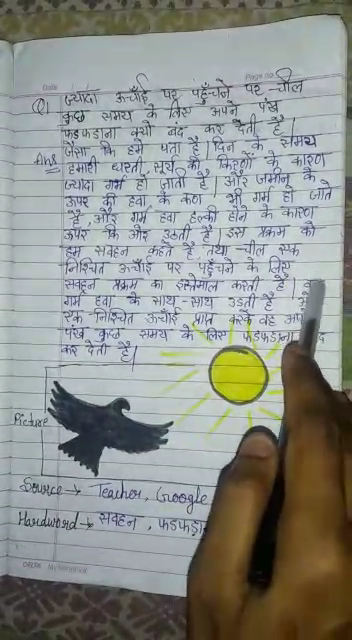 Date
Page no.
Q1 ज्यादा ऊचाँई पर पहुँचने पर चील
कुछ समय के लिए अपने पंख
फड़फडाना क्यों बंद कर देती है।
Ans जैसा कि हमे पता है। दिन के समय
हमारी धरती सूर्य की किरणों के कारण
ज्यादा गर्म हो जाती है। और जमीन के
ऊपर की हवा के कण भी गर्म हो जाते
है, और गर्म हवा हल्की होने के कारण
ऊपर कि ओर उठती है। इस प्रक्रम को
हम सवहन कहते है, तथा चील एक
निश्चित ऊचाँई पर पहुँचने के लिए
सवहन प्रक्रम का इस्तेमाल करती है।
गर्म हवा के साथ-साथ उडती है
एक निश्चित ऊचाँई प्राप्त करके वह
पंख कुछ समय के लिए फडफडाना
कर देती है।
Picture
Source → Teacher, Google
Hardword → सवहन,